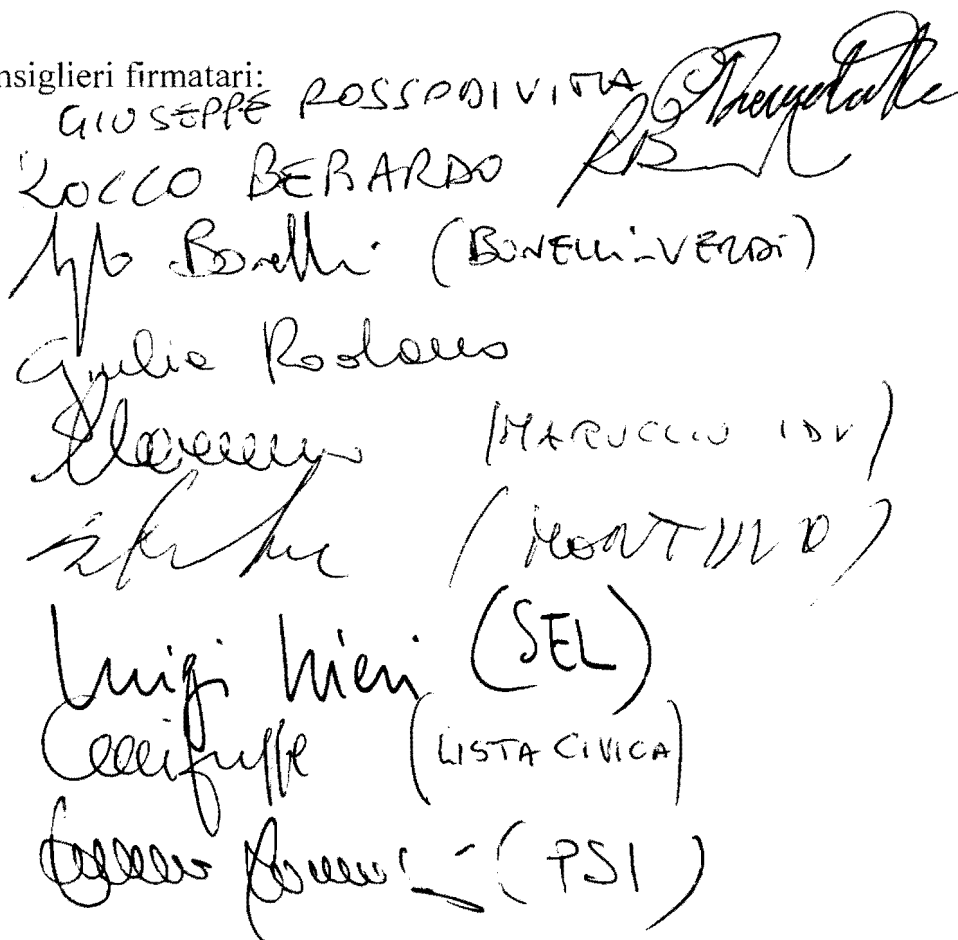 nsiglieri firmatari:
GIUSEPPE ROSSODIVITA
ROCCO BERARDO
Bonelli (BONELLI-VERDI)
Giulia Rodano
(MARUCCIO IDV)
(MONTINO)
Luigi Nieri (SEL)
(LISTA CIVICA)
(PSI)